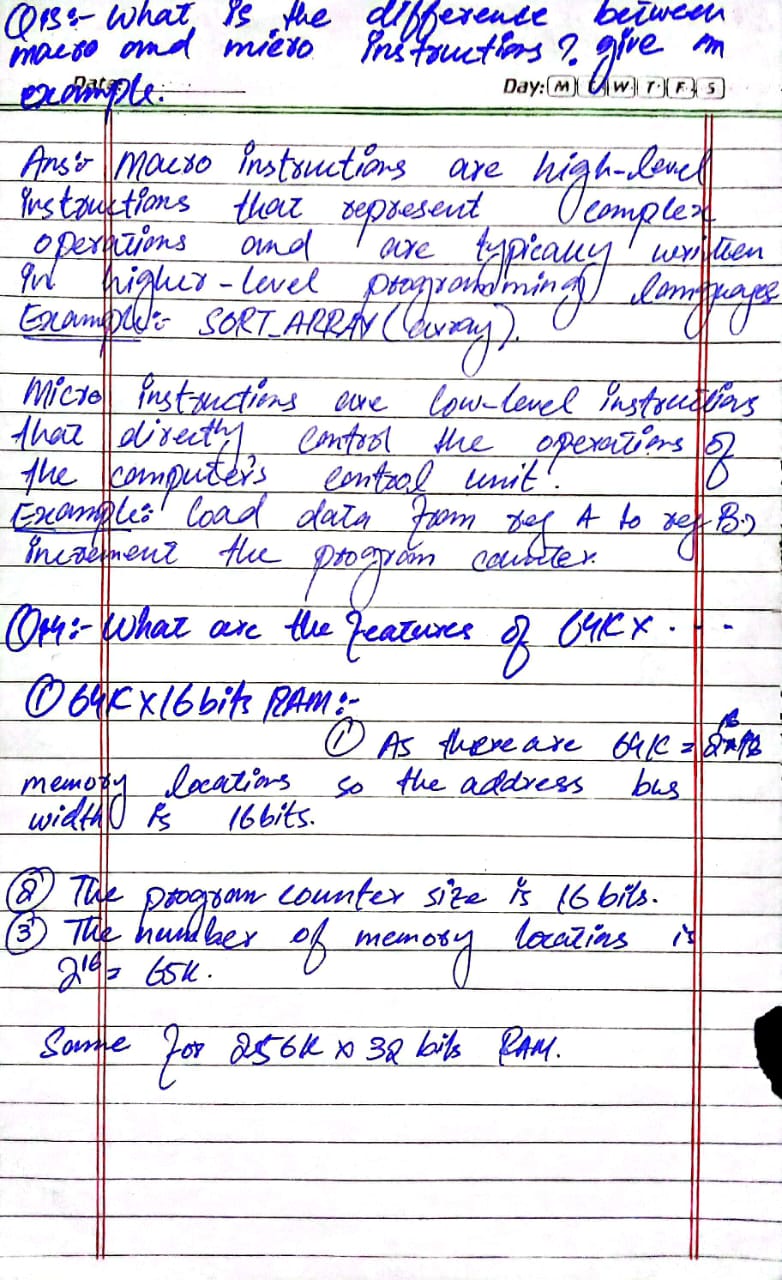 Q13:- What is the difference between
macro and micro instructions? give an
example.
Date:
Day: M T W T F S
Ans:- Macro instructions are high-level
instructions that represent complex
operations and are typically written
in higher-level programming languages
Example:- SORT_ARRAY(array).
Micro instructions are low-level instructions
that directly control the operations of
the computer's control unit.
Example:- load data from reg A to reg B.,
increment the program counter.
Q14:- What are the features of 64K x ....
① 64K x 16 bits RAM:-
① As there are 64K =
memory locations so the address bus
width is 16 bits.
② The program counter size is 16 bits.
③ The number of memory locations is
2¹⁶ = 65K.
Same for 256K x 32 bits RAM.